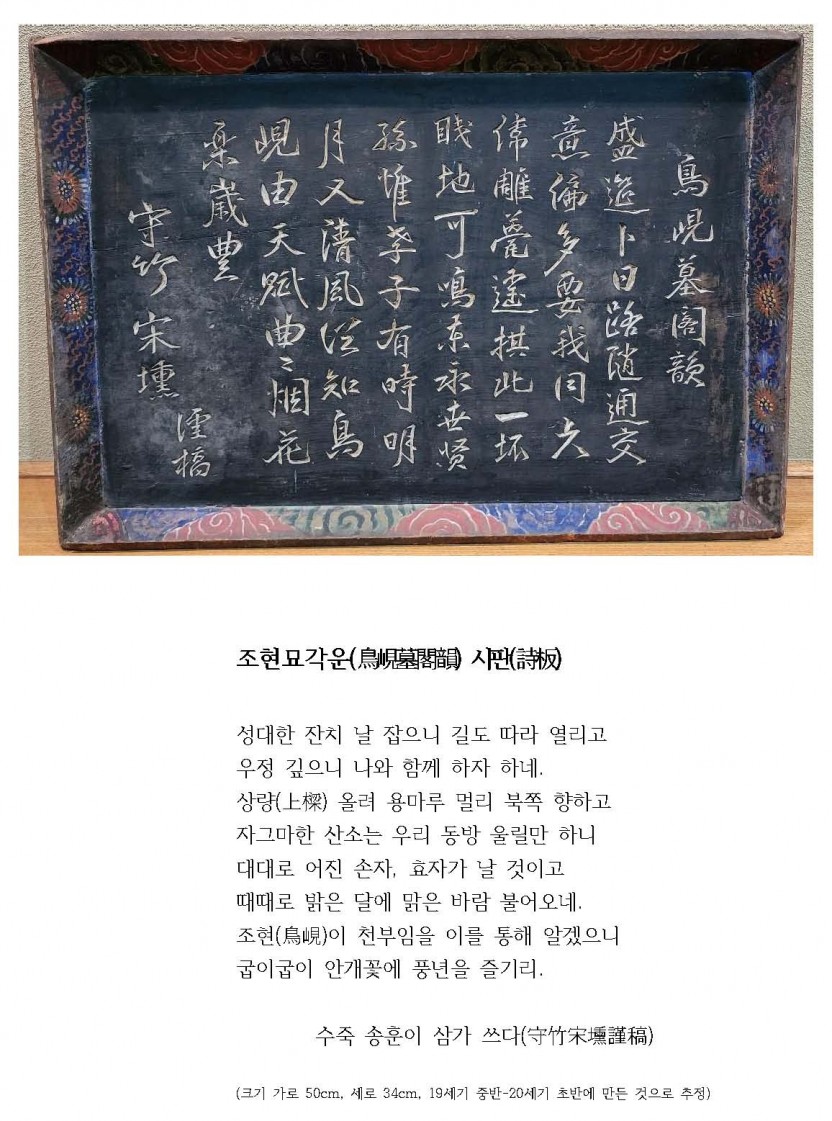 鳥峴墓閣韻
盛筵卜日路隨通交
意偏多要我同六
偉雕甍遙拱北一坏
賤地可鳴東永世賢
孫惟孝子有時明
月又淸風從知鳥
峴由天賦曲〻烟花
樂歲豊
守竹宋壎
謹稿
조현묘각운(鳥峴墓閣韻) 시판(詩板)
성대한 잔치 날 잡으니 길도 따라 열리고
우정 깊으니 나와 함께 하자 하네.
상량(上樑) 올려 용마루 멀리 북쪽 향하고
자그마한 산소는 우리 동방 울릴만 하니
대대로 어진 손자, 효자가 날 것이고
때때로 밝은 달에 맑은 바람 불어오네.
조현(鳥峴)이 천부임을 이를 통해 알겠으니
굽이굽이 안개꽃에 풍년을 즐기리.
수죽 송훈이 삼가 쓰다(守竹宋壎謹稿)
(크기 가로 50cm, 세로 34cm, 19세기 중반-20세기 초반에 만든 것으로 추정)